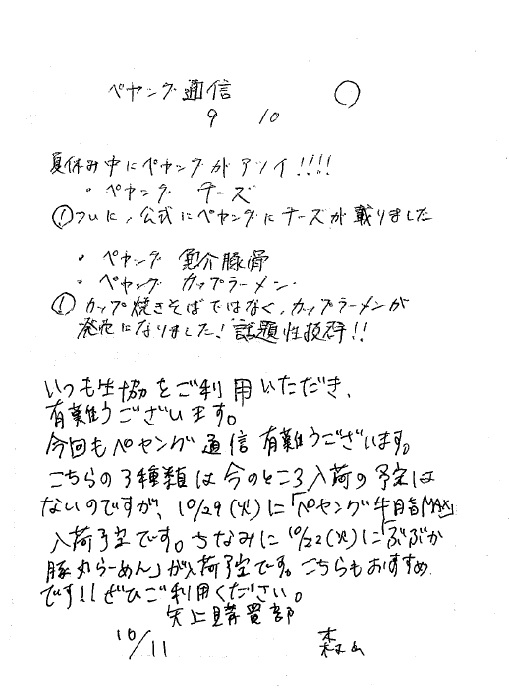 ペヤング通信
9 10
夏休み中にペヤングがアツイ!!!!
・ペヤング チーズ
① ついに、公式にペヤングにチーズが載りました
・ペヤング 魚介豚骨
・ペヤング カップラーメン
① カップ焼きそばではなく、カップラーメンが
発売になりました!話題性抜群!!
いつも生協をご利用いただき、
有難うございます。
今回もペヤング通信有難うございます。
こちらの3種類は今のところ入荷の予定は
ないのですが、10/29(火)に「ペヤング牛脂MAX」
入荷予定です。ちなみに10/22(火)に「ぶぶか
豚丸らーめん」が入荷予定です。こちらもおすすめ
です!!ぜひご利用ください。
矢上購買部
10/11 森